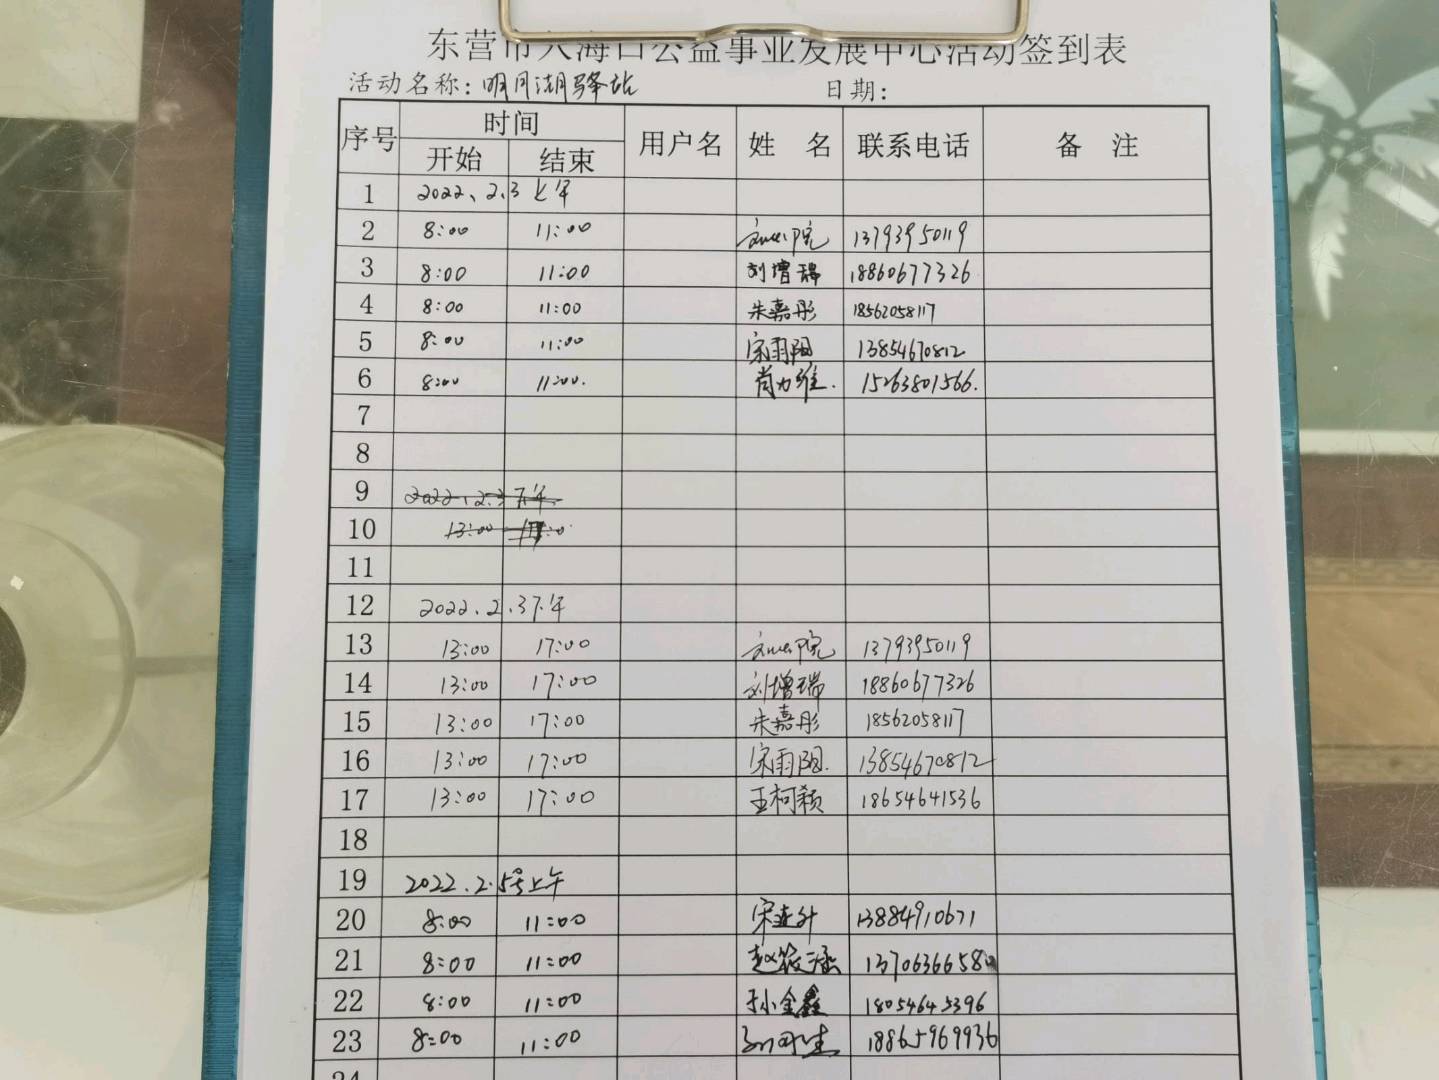 东营市大海口公益事业发展中心活动签到表
活动名称：明月湖驿站 日期：
序号 时间 用户名 姓 名 联系电话 备 注
开始 结束
1 2022、2.3 上午
2 8:00 11:00 13793950119
3 8:00 11:00 刘增瑞 18860677326
4 8:00 11:00 朱嘉彤 18562058117
5 8:00 11:00 宋雨阳 13854670812
6 8:00 11:00. 15263801566.
7
8
9 2022.2.3 下午
10 13:00
11
12 2022.2.3下午
13 13:00 17:00 13793950119
14 13:00 17:00 刘增瑞 18860677326
15 13:00 17:00 朱嘉彤 18562058117
16 13:00 17:00 宋雨阳. 13854670812
17 13:00 17:00 王柯颖 18654641536
18
19 2022.2.5号上午
20 8:00 11:00 13884910671
21 8:00 11:00 1370636658
22 8:00 11:00 18054645396
23 8:00 11:00 18865969936
24